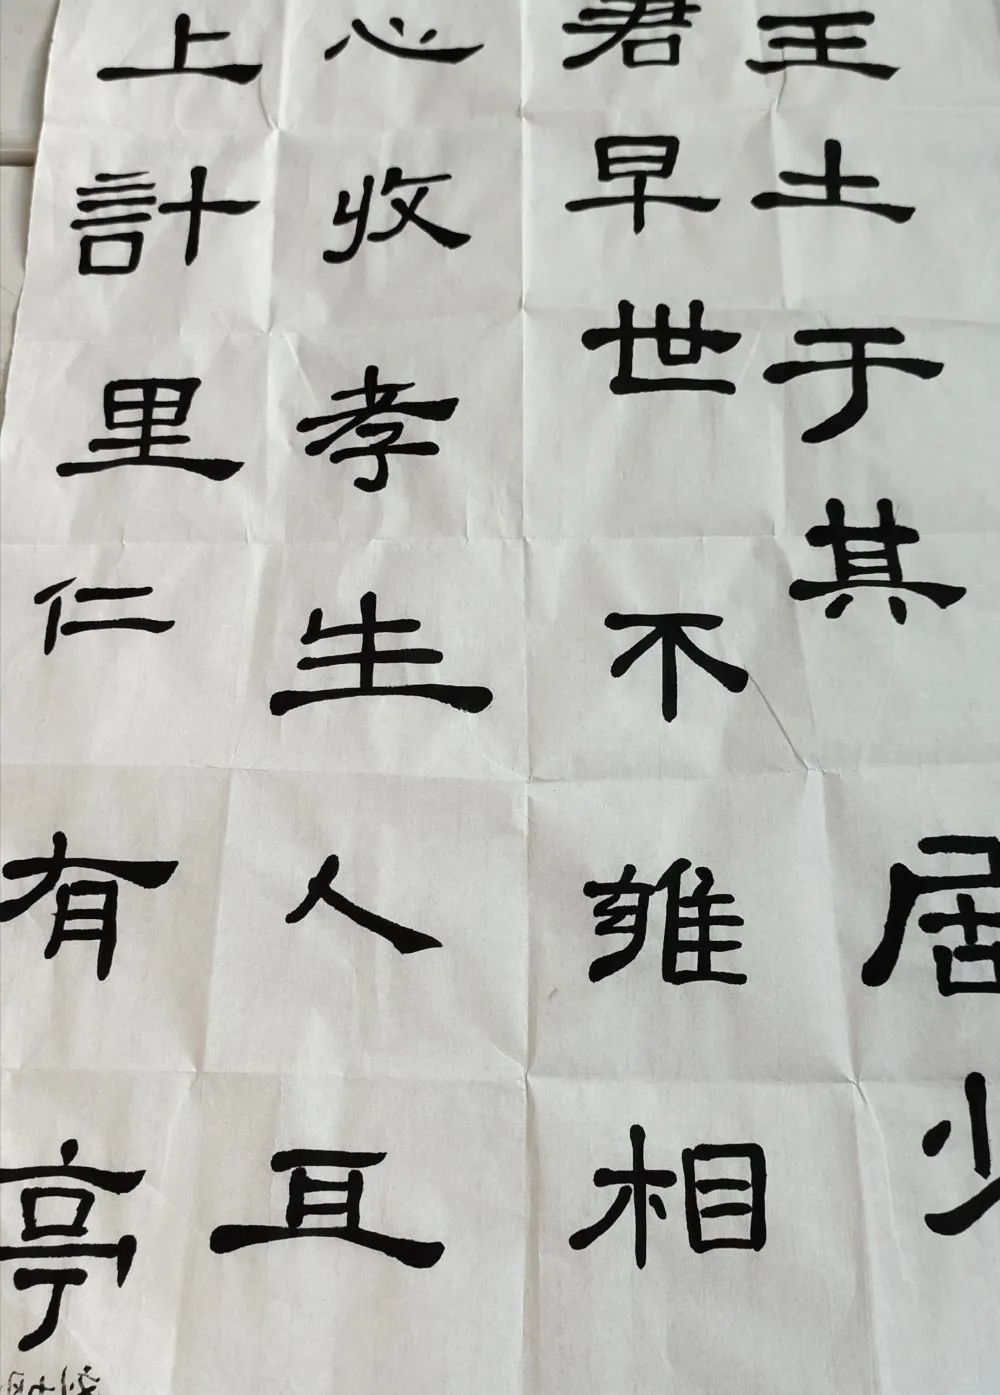 王土于其居少
君早世不雍相
心收孝生人亘
上計里仁有亭